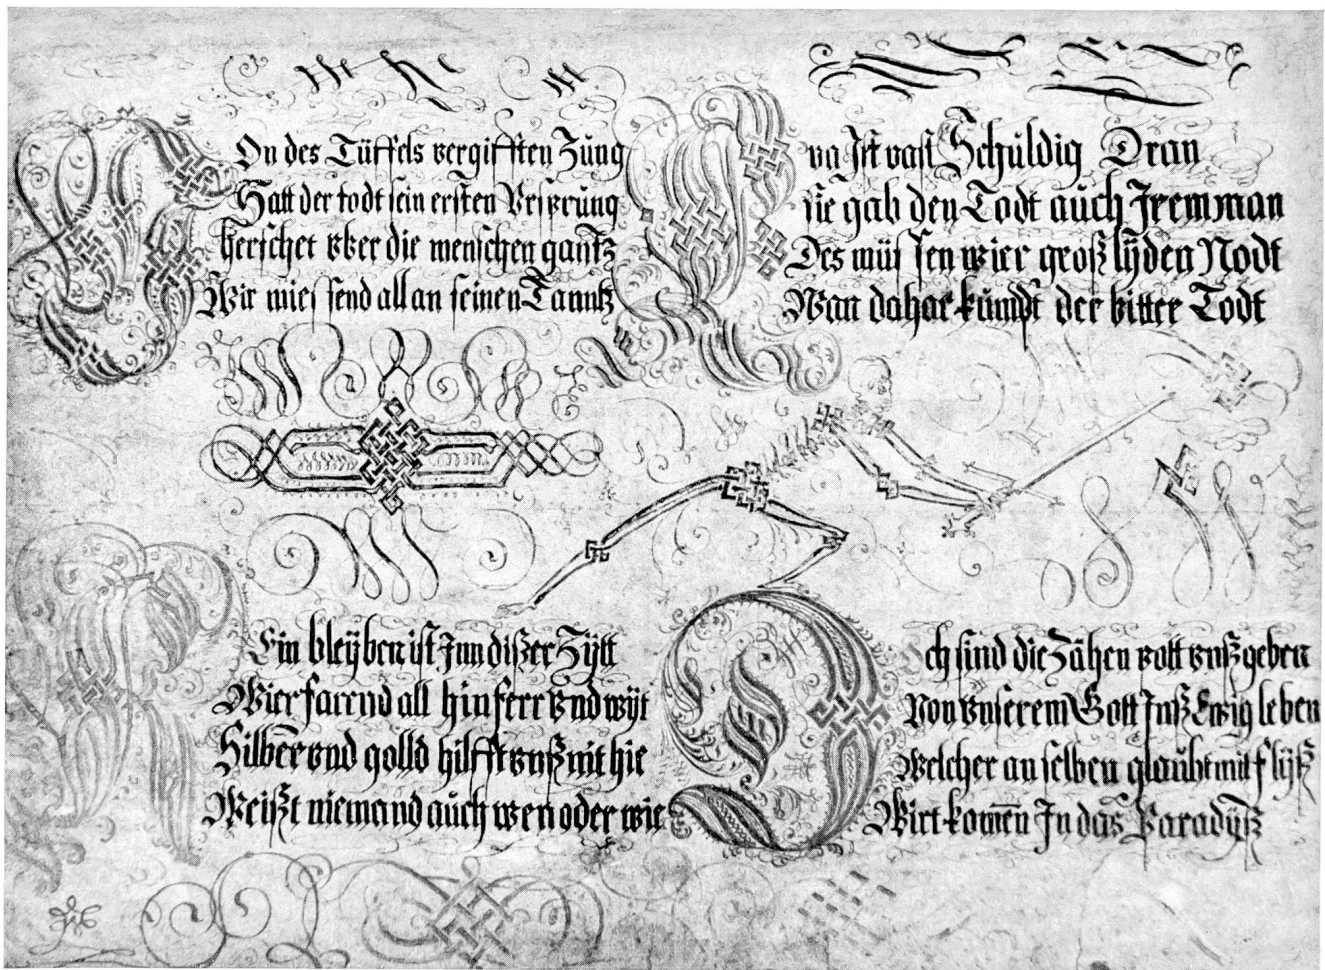 Von des Tüffels vergifften Zung
Hatt der todt sein ersten Vrsprüng
herschet vber die menschen gantz
Wir miessend all an seinen Tanntz
Eva Ist vast Schuldig Dran
sie gab den Todt auch Jrem man
Des müssen wier groß lyden Nodt
Wan dahar kumpt der bitter Todt
Kein bleyben ist Jnn dißer Zytt
Wier farend all hin ferr vnd wyt
Silber vnd golld hilfft vnß nit hie
Weißt niemand auch wen oder wie
Doch sind die Zähen bott vnß geben
Von vnserem Gott Jnß Ewig leben
Welcher an selben glaubt mit flyß
Wirt komen Jn das Paradyß